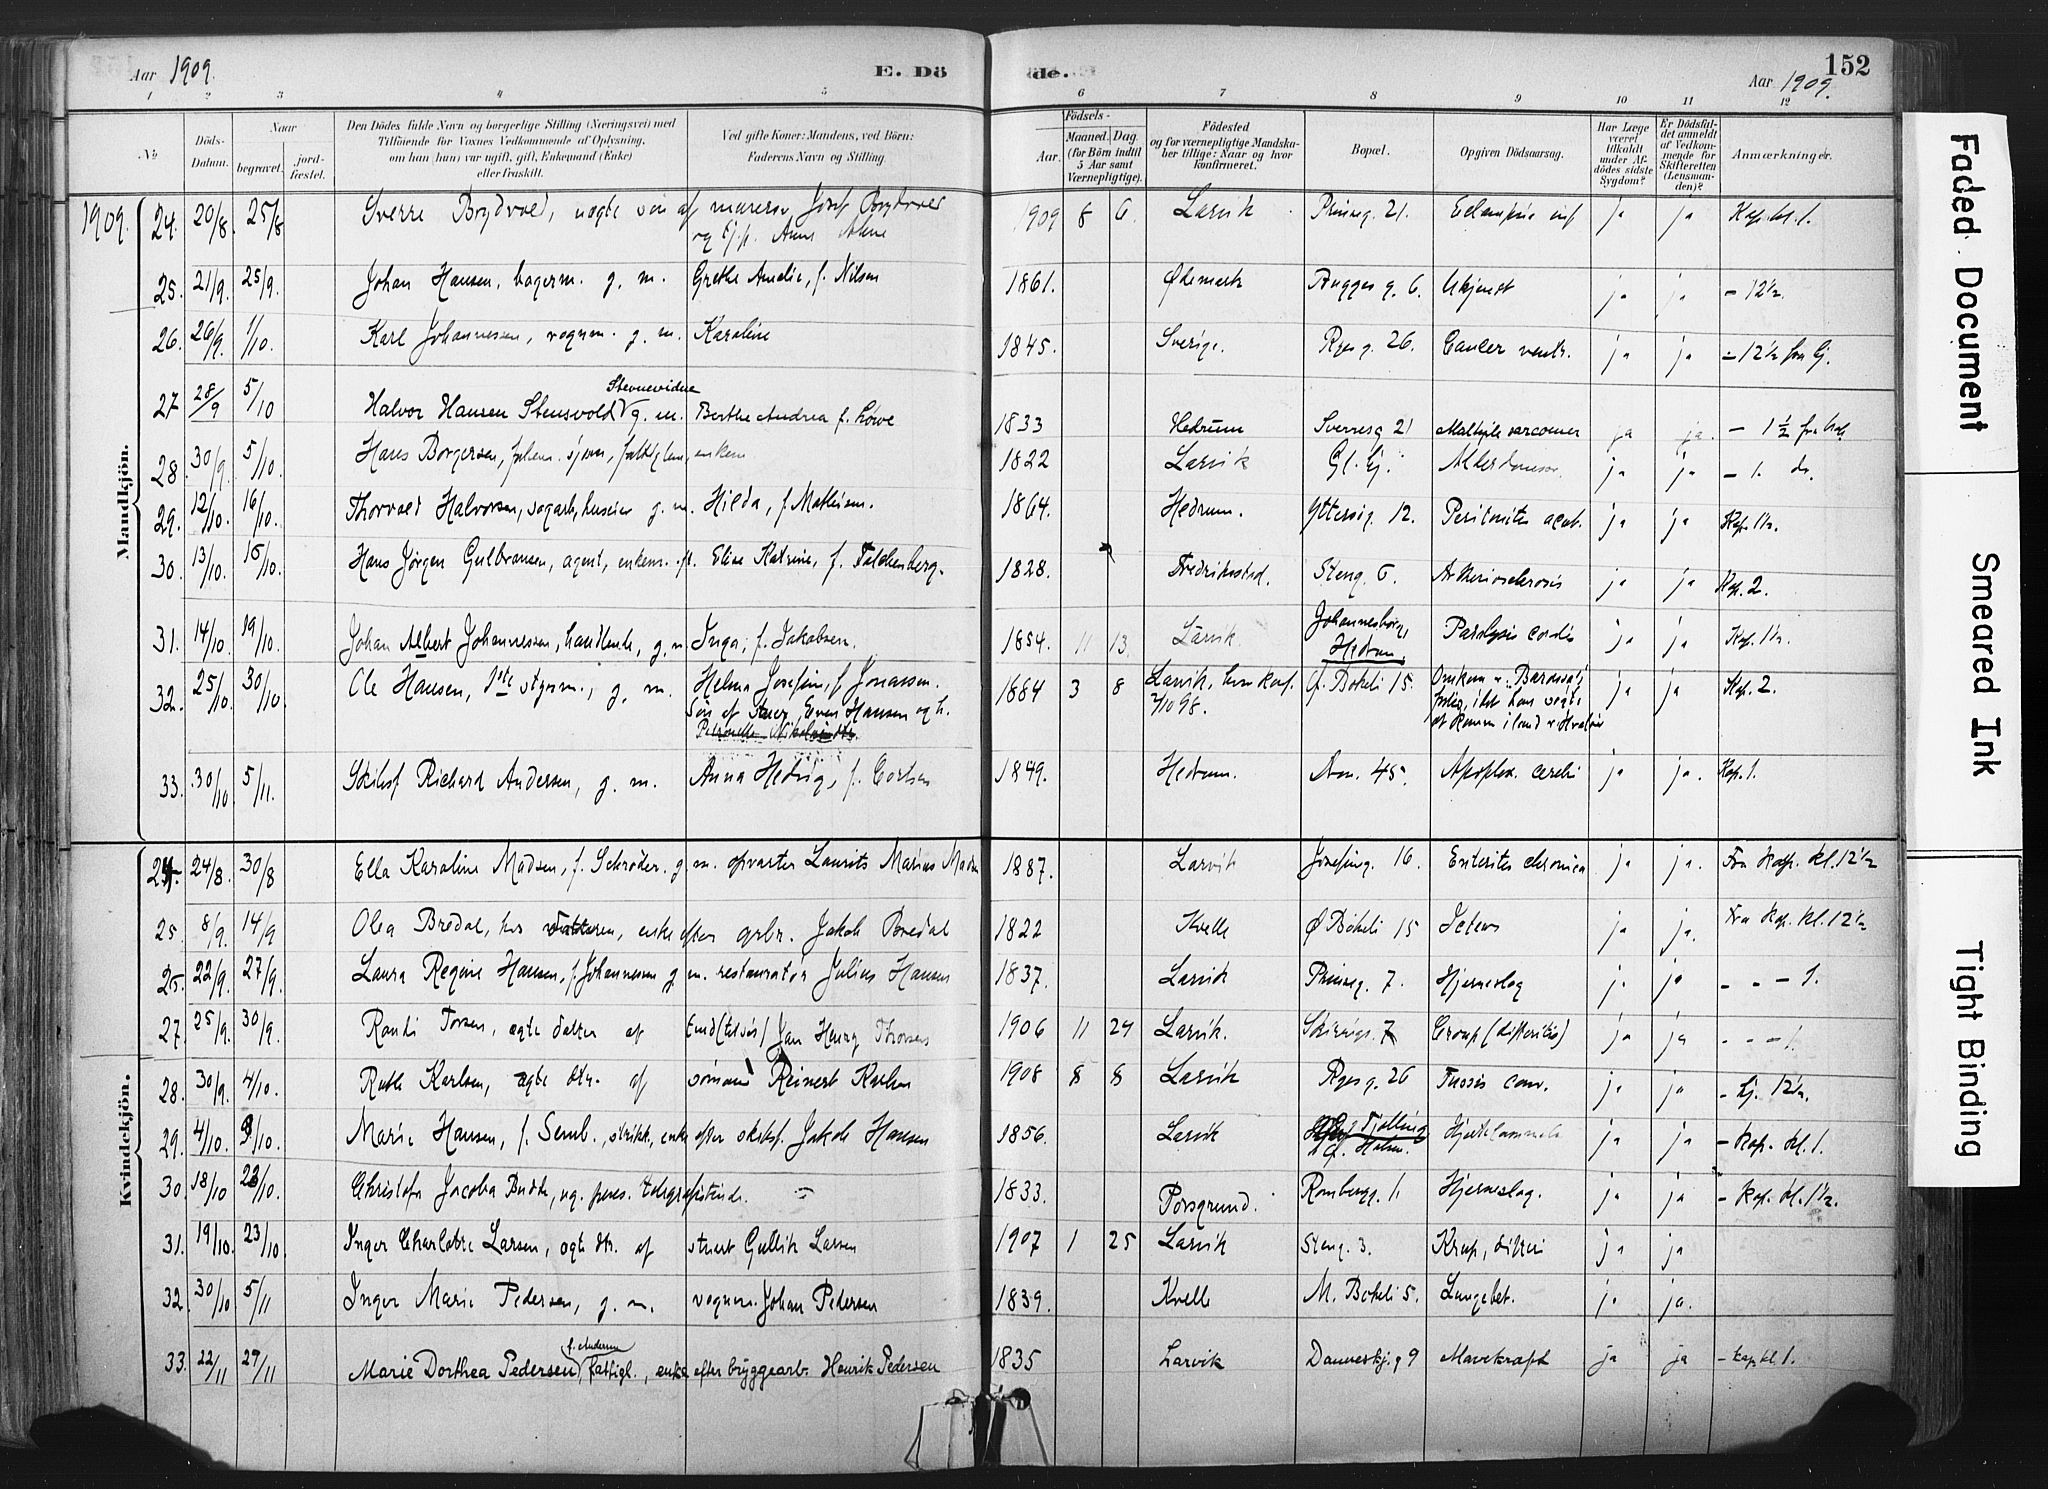 Aar 1909.
E. Dö
de.
152
Aar 1909.
1 2 3 4 5 6 7 8 9 10 11 12
No
Döds-Datum.
Naar
begravet.
jord-fæstet.
Den Dödes fulde Navn og borgerlige Stilling (Næringsvei) med
Tilföiende for Voxnes Vedkommende af Oplysning,
om han (hun) var ugift, gift, Enkemand (Enke)
eller fraskilt.
Ved gifte Koner: Mandens, ved Börn:
Faderens Navn og Stilling.
Födsels-
Aar.
Maaned.
Dag.
(for Börn indtil
5 Aar samt
Værnepligtige).
Födested
og for værnepligtige Mandska-
ber tillige: Naar og hvor
konfirmeret.
Bopæl.
Opgiven Dödsaarsag.
Har Læge
været
tilkaldt
under Af-
dödes sidste
Sygdom?
Er Dödsful-
det anmeldt
af Vedkom-
mende for
Skifteretten
(Lensman-
den)?
Anmærkninger.
1909.
Mandkjön.
24. 20/8. 25/8 Sverre Brydved, ægte søn af murersv. Josef Brydved 1909 8 6. Larvik Prinseg. 21. Eclampsie inf ja ja Kap. kl. 1.
25. 21/9. 25/9. Johan Hansen, bagerm. g. m. Grethe Amalie, f. Nilsen 1861. Ødemark Brugges g. 6. Ukjendt ja ja - 12½.
26. 26/9. 1/10. Karl Johannesen, vognm. g. m. Karoline 1845. Sverige. Ryes g. 26. Cancer ventr. ja ja - 12½ fra Kj.
Stevnevidne
27 28/9 5/10 Halvor Hansen Stensvold g. m. Berthe Andrea f. Löwe 1833 Hedrum Sverresg 21 Multiple sarcomer ja ja. - 1½ fra
28. 30/9. 5/10. Hans Borgersen, sjøm, fattiglem, enkem 1822 Larvik Gl. Kj. Alderdomssv. ja ja - 1. do.
29. 12/10. 16/10. Thorvald Halvorsen, sagarb, huseier g. m. Hilda, f. Mathisen. 1864. Hedrum. Yttersøg. 12. Peritonites acut. ja ja Kap. 1½.
30. 13/10. 15/10. Hans Jørgen Gulbransen, agent, enkem. eft. Elise Katrine, f. Falchenberg. 1828. Fredrikstad. Steng. 6. Arteriosclerosis ja ja Kap. 2.
31. 14/10. 19/10. Johan Albert Johannessen, handlende, g. m. Inga, f. Jakobsen. 1854. 11 13. Larvik. Johannesborg, Hedrum. Paralysis cordis ja ja Kap. 1½.
32. 25/10. 30/10. Ole Hansen, 1ste styrm., g. m. Helma Josefine, f. Jonassen. 1884 3 8 Larvik, konf. Ø. Bökeli 15. ja ja Kap. 2.
Søn af Even Hansen og h.
7/10 98.
33. 30/10. 5/11. Skibsf Richard Andersen, g. m. Anna Hedvig, f. 1849. Hedrum. 45. Apoplex. cerebri ja ja. Kap. 1.
Kvindekjön.
24. 24/8. 30/8 Ella Karoline Madsen, f. Schrøder. g. m. opvarter Laurits Marius Madsen 1887. Larvik Josefineg. 16. Enterites chronica ja ja. Fra Kap. kl. 12½
25. 8/9. 14/9 Olea Bredal, hos datteren, enke efter grbr. Jakob Bredal 1822 Kvelle Ø Bökeli 15 Icterus ja ja. Fra Kap. kl. 12½
25. 22/9. 27/9. Laura Regine Hansen, f. Johannesen g. m. restauratør Julius Hansen 1837. Larvik Prinseg. 7. Hjerneslag ja ja - - - 1.
27. 25/9. 30/9. Randi Torsen, ægte datter af Jan Henry Thorsen 1906 11 24 Larvik. Skiringss. 7 Croup (difteritis) ja ja - - - 1.
28. 30/9. 4/10. Ruth Karlsen, ægte dtr. af sømand Reinert Karlsen 1908 8 8 Larvik Ryes g. 26 Tussis conv. ja ja - Kj. 12½.
29. 4/10. 9/10. Marie Hansen, f. Semb., enke efter skibsf. Jakob Hansen 1856. Larvik Tjølling Holm. Hjertelammelse ja ja - Kap. kl. 1.
30. 18/10 23/10. Christofa Jacoba Budde, ug. pens. telegrafistinde. 1833. Porsgrund. Rombergg. 1. Hjerneslag. ja ja - Kap. kl. 1½.
31. 19/10. 23/10 Inger Charlotte Larsen, ægte dtr. af stuert Gullik Larsen 1907 1 25 Larvik Steng. 3. Krup, difteri ja ja
32. 30/10 5/11 Inger Marie Pedersen, g. m. vognm. Johan Pedersen 1839. Kvelle M. Bökeli 5. Lungebet. ja ja.
f. Andersen
33. 22/11 27/11 Marie Dorthea Pedersen, fattigl., enke efter bryggearb. Henrik Pedersen 1835 Larvik Danneskj. g 9 Mavekræft ja ja - kap kl. 1.
Faded Document
Smeared Ink
Tight Binding